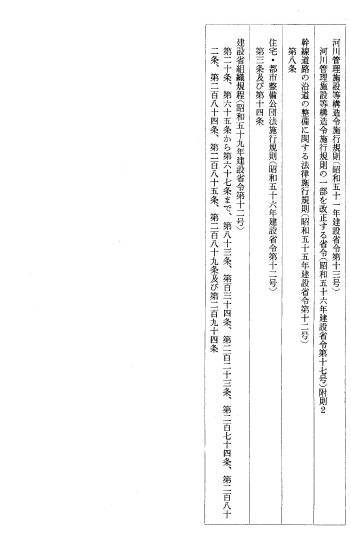 河川管理施設等構造令施行規則（昭和五十一年建設省令第十三号）
河川管理施設等構造令施行規則の一部を改正する省令（昭和五十六年建設省令第十七号）附則２
幹線道路の沿道の整備に関する法律施行規則（昭和五十五年建設省令第十二号）
第八条
住宅・都市整備公団法施行規則（昭和五十六年建設省令第十二号）
第三条及び第十四条
建設省組織規程（昭和五十九年建設省令第十二号）
第二十条、第六十五条から第六十七条まで、第八十三条、第百三十四条、第二百二十三条、第二百七十四条、第二百八十
二条、第二百八十四条、第二百八十五条、第二百八十九条及び第二百九十四条